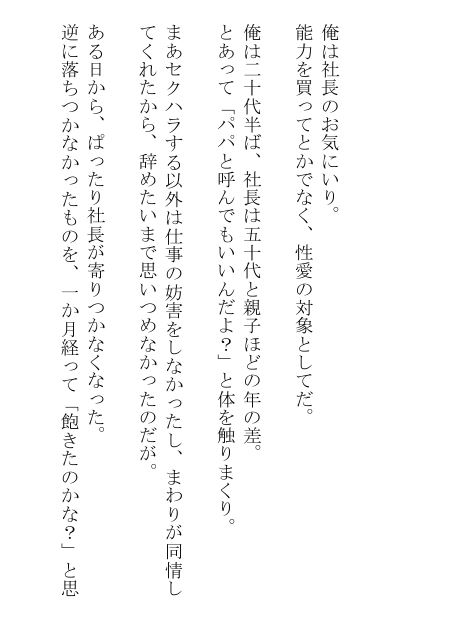 俺は社長のお気にいり。
能力を買ってとかでなく、性愛の対象としてだ。
俺は二十代半ば、社長は五十代と親子ほどの年の差。
とあって「パパと呼んでもいいんだよ？」と体を触りまくり。
まあセクハラする以外は仕事の妨害をしなかったし、まわりが同情し
てくれたから、辞めたいまで思いつめなかったのだが。
ある日から、ぱったり社長が寄りつかなくなった。
逆に落ちつかなかったものを、一か月経って「飽きたのかな？」と思